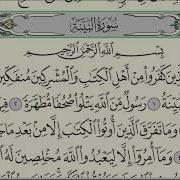 سُورَةُ البَيِّنَةِ
بِسْمِ ٱللَّهِ ٱلرَّحْمَٰنِ ٱلرَّحِيمِ
ذِينَ كَفَرُوا۟ مِنْ أَهْلِ ٱلْكِتَٰبِ وَٱلْمُشْرِكِينَ مُنفَكِّينَ
يِّنَةُ ١ رَسُولٌ مِّنَ ٱللَّهِ يَتْلُوا۟ صُحُفًا مُّطَهَّرَةً ٢
وَمَا تَفَرَّقَ ٱلَّذِينَ أُوتُوا۟ ٱلْكِتَٰبَ إِلَّا مِنۢ بَعْدِ مَا
وَمَآ أُمِرُوٓا۟ إِلَّا لِيَعْبُدُوا۟ ٱللَّهَ مُخْلِصِينَ لَهُ